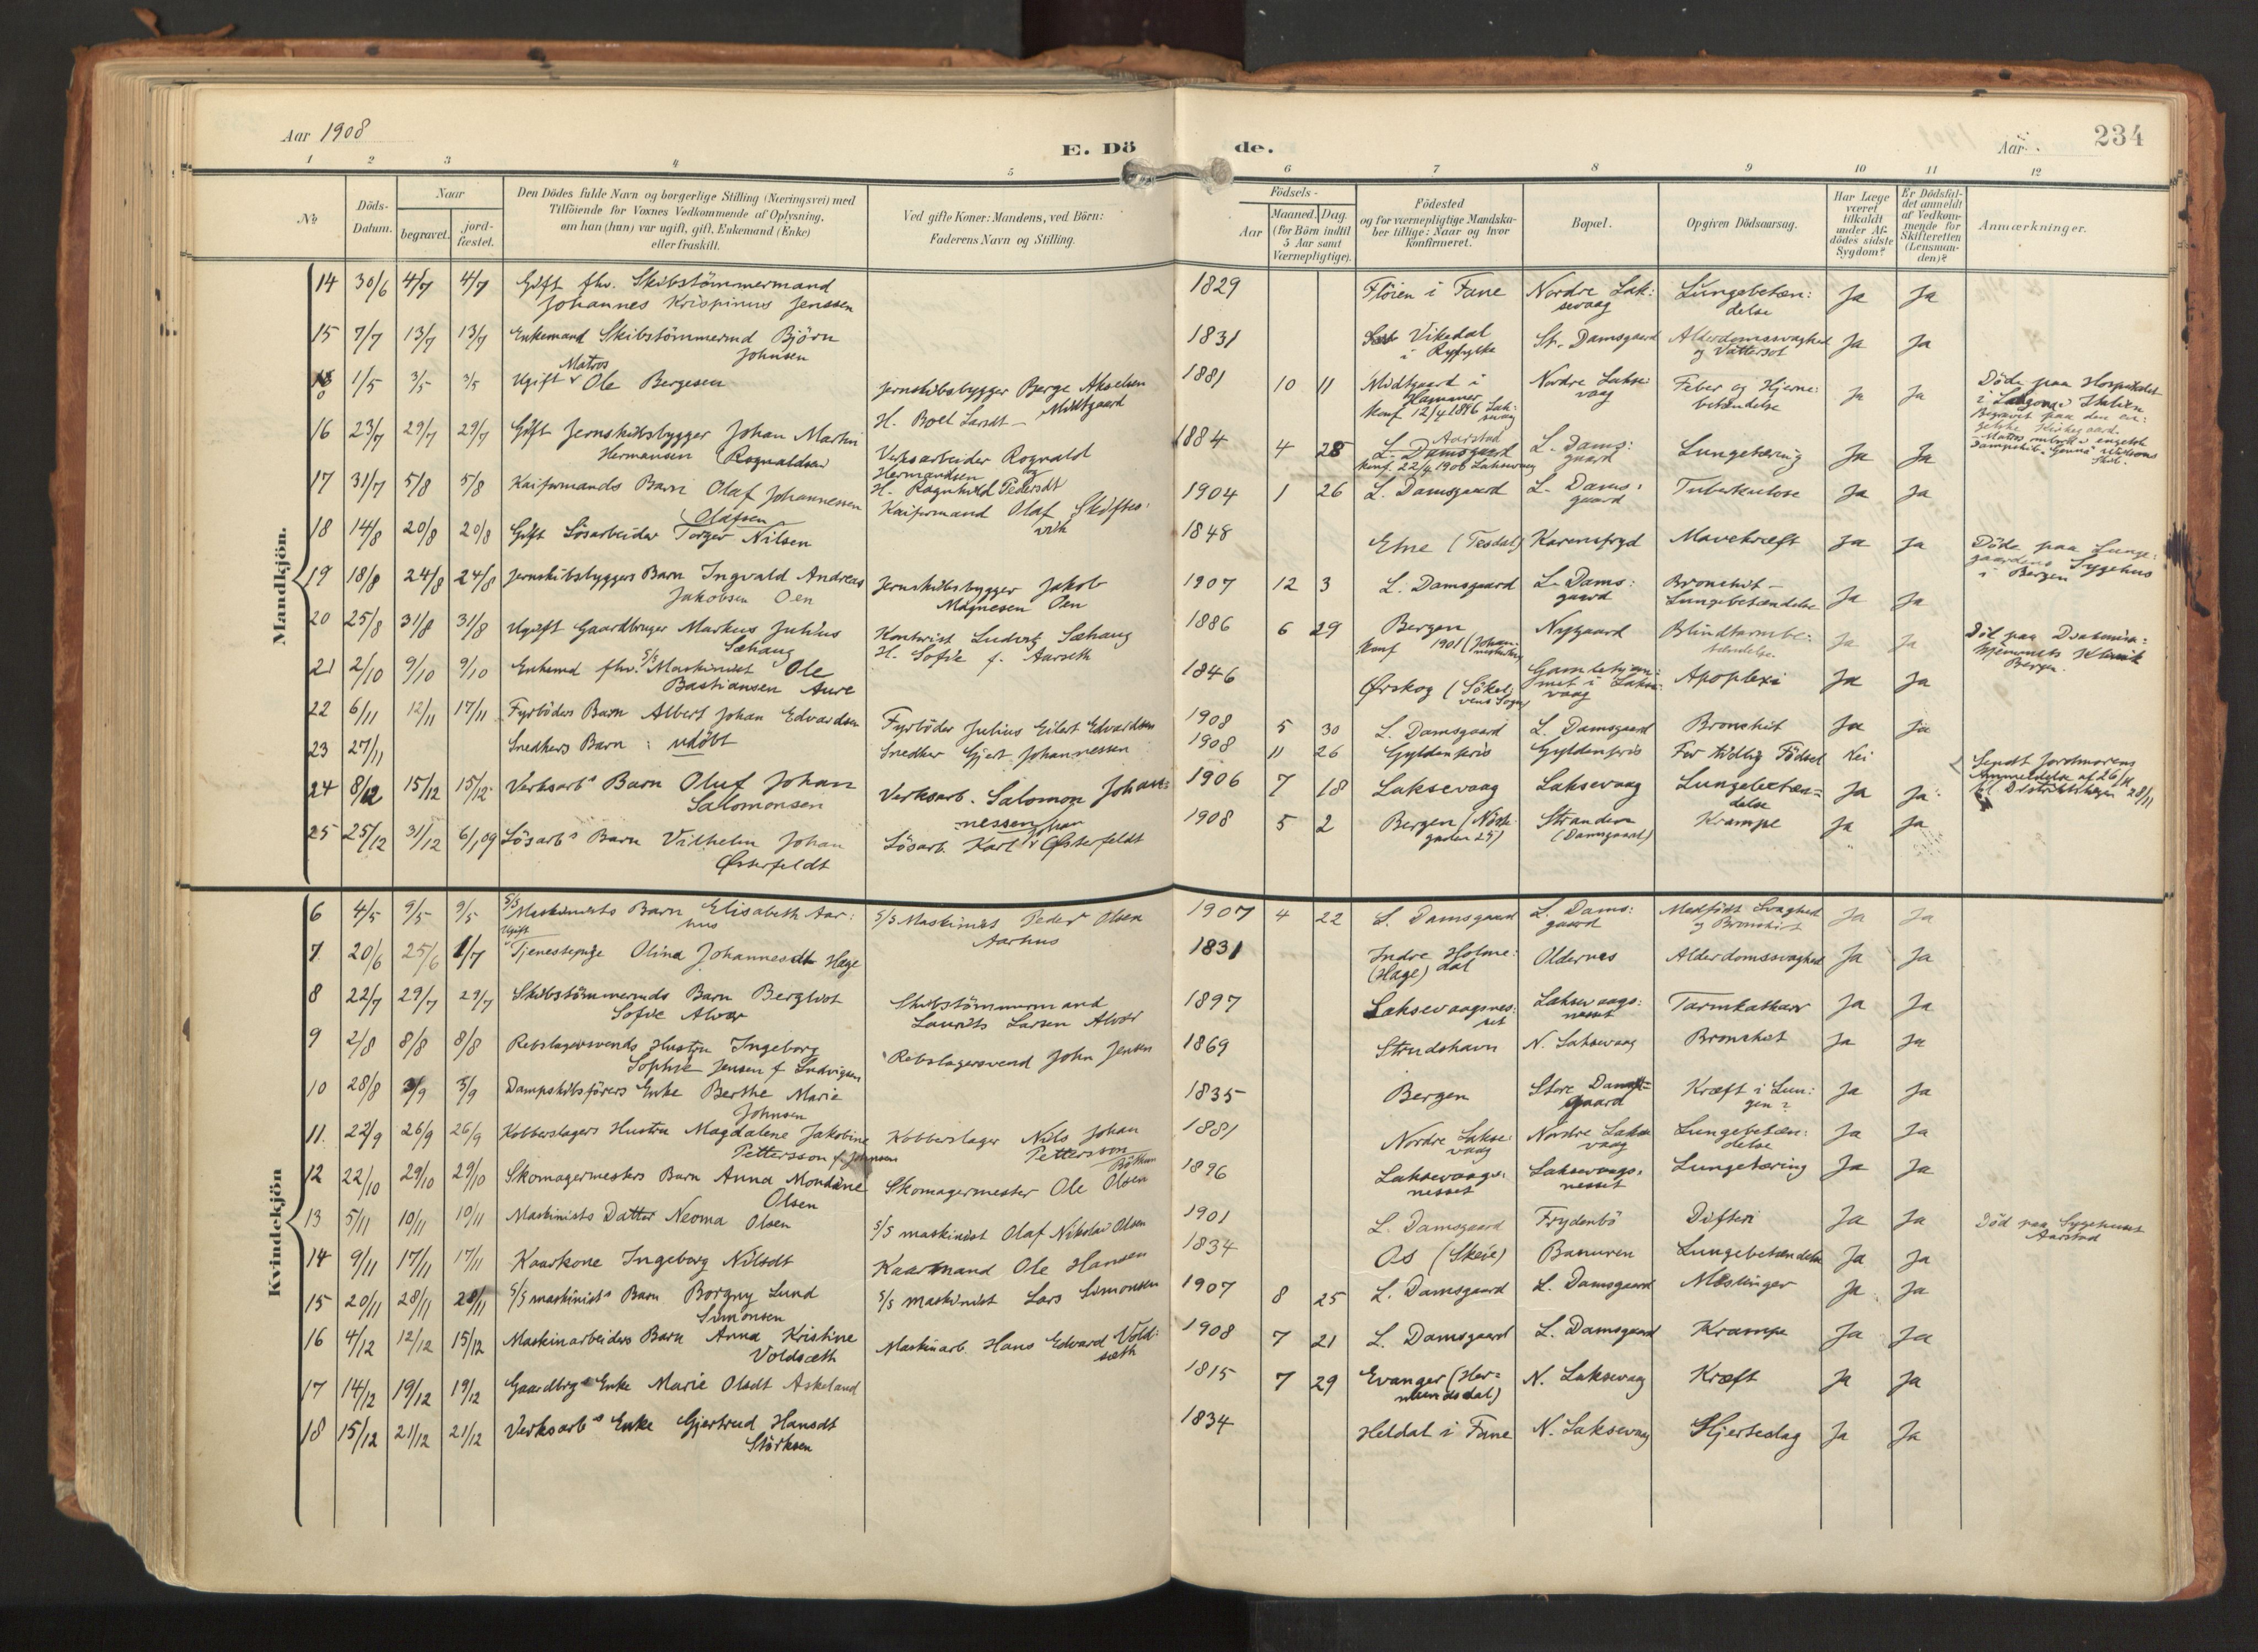 Aar 1908
E. Dö
de.
Aar
234
1 2 3 4 5 6 7 8 9 10 11 12
No
Döds-
Datum.
Naar
begravet.
jord-
fæstet.
Den Dödes fulde Navn og borgerlige Stilling (Næringsvei) med
Tilföiende for Voxnes Vedkommende af Oplysning,
om han (hun) var ugift, gift, Enkemand (Enke)
eller fraskilt.
Ved gifte Koner: Mandens, ved Börn:
Faderens Navn og Stilling.
Födsels-
Aar
Maaned. Dag.
(for Börn indtil
5 Aar samt
Værnepligtige).
Födested
og for værnepligtige Mandska-
ber tillige: Naar og hvor
Konfirmeret.
Bopæl.
Opgiven Dödsaarsag.
Har Læge
været
tilkaldt
under Af-
dödes sidste
Sygdom?
Er Dödsfal-
det anmeldt
af Vedkom-
mende for
Skifteretten
(Lensman-
den)?
Anmærkninger.
Mandkjön.
14 30/6 4/7 4/7 Gift fhv. Skibstömmermand 1829 Flöien i Fane Nordre Lak: Lungebetæn: Ja Ja
Johannes Krispinus Jenssen sevaag delse
15 7/7 13/7 13/7 Enkemand Skibstömmermd Björn 1831 Vikedal St. Damsgaard Alderdomssvaghed Ja Ja
Johnsen i Ryfylke og Vattersot
Matros
1/5 3/5 3/5 Ugift Ole Bergesen Jernskibsbygger Berge Akselsen 1881 10 11 Midtgaard i Nordre Lakse: Feber og Hjerne: Ja Ja Döde paa Hospitalet
Midtgaard Hammer vaag betændelse i Italien
H. Boel Larsdt Konf. 12/4 1896 Lak: Begravet paa den en:
sevaag gelske Kirkegaard
16 23/7 29/7 29/7 Gift Jernskibsbygger Johan Martin Verksarbeider Rognald 1884 4 28 Aarstad L. Dams: Lungetæring Ja Ja
Hermansen (Rognaldsen) Hermandsen og L. Damsgaard gaard
H. Ragnhild Pedersdt Konf. 22/4 1900 Laksevaag
17 31/7 5/8 5/8 Kaiformands Barn Olaf Johannessen Kaiformand Olaf Skiftes: 1904 1 26 L. Damsgaard L. Dams: Tuberkulose Ja Ja
Olafsen vik gaard
18 14/8 20/8 20/8 Gift Lösarbeider Torger Nilsen 1848 Etne (Tesdal) Karensfryd Mavekræft Ja Ja Döde paa Lunge:
gaardens Sygehus
i Bergen
19 18/8 24/8 24/8 Jernskibsbyggers Barn Ingvald Andreas Jernskibsbygger Jakob 1907 12 3 L. Damsgaard L. Dams: Bronchit - Ja Ja
Jakobsen Oen Magnesen Oen gaard Lungebetændelse
20 25/8 31/8 31/8 Ugift Gaardbruger Markus Julius Kontorist Ludvig Sæhaug 1886 6 29 Bergen Nygaard Blindtarmbe: Ja Ja Död paa Diakonisse:
Sæhaug H. Sofie f. Aarseth Konf 1901 (Johan: tændelse hjemmets Klinik
neskirken) Bergen
21 2/10 9/10 9/10 Enkemd fhv. S/S Maskinist Ole 1846 Ørskog (Sökel: Gamlehjem: Apoplexi Ja Ja
Bastiansen Aure vens Sogn) met i Lakse:
vaag
22 6/11 12/11 17/11 Fyrböders Barn Albert Johan Edvardsen Fyrböder Julius Eilert Edvardsen 1908 5 30 L. Damsgaard L. Damsgaard Bronchit Ja Ja
23 27/11 Snedkers Barn: udöbt Snedker Gjert Johannessen 1908 11 26 Gyldenpris Gyldenpris For tidlig Födsel Nei Sendt Jordmorens
Anmeldelse af 26/11
til Distriktslægen 28/11
24 8/12 15/12 15/12 Verksarbs Barn Oluf Johan Verksarb. Salomon Johan: 1906 7 18 Laksevaag Laksevaag Lungebetæn= Ja Ja
Salomonsen nessen delse
25 25/12 31/12 6/1 09 Lösarbs Barn Vilhelm Johan Lösarb. Karl Johan Østerfeldt 1908 5 2 Bergen (Nöste: Stranden Krampe Ja Ja
Østerfeldt gaden 25) (Damsgaard)
Kvindekjön
6 4/5 9/5 9/5 S/S Maskinists Barn Elisabeth Aar: S/S Maskinist Peder Olsen 1907 4 22 L. Damsgaard L. Dams: Medfödt Svaghed Ja Ja
hus Aarhus gaard og Bronchit
Ugift
7 20/6 25/6 1/7 Tjenestepige Olina Johannesdt Hage 1831 Indre Holme: Oldernes Alderdomssvaghed Ja Ja
(Hage) dal
8 22/7 29/7 29/7 Skibstömmermds Barn Bergliot Skibstömmermand 1897 Laksevaagsnes: Laksevaags: Tarmkatharr Ja Ja
Sofie Alvær Laurits Larsen Alvær set nesset
9 2/8 8/8 8/8 Rebslagersvends Hustru Ingeborg Rebslagersvend John Jensen 1869 Strudshavn N. Laksevaag Bronchit Ja Ja
Sophie Jensen f. Ludvigsen
10 28/8 3/9 3/9 Dampskibsförers Enke Berthe Marie 1835 Bergen Store Dams= Kræft i Lun: Ja Ja
Johnsen gaard gen?
11. 22/9 26/9 26/9 Kobberslagers Hustru Magdalene Jakobine Kobberslager Nils Johan 1881 Nordre Lakse: Nordre Lakse Lungebetæn: Ja Ja
Pettersson f. Johnsen Pettersson vaag vaag delse
12 22/10 29/10 29/10 Skomagermesters Barn Anna Mondine Skomagermester Ole Olsen 1896 Laksevaags: Laksevaags: Lungetæring Ja Ja
Olsen nesset nesset
13 5/11 10/11 10/11 Maskinists Datter Neoma Olsen S/S maskinist Olaf Nikolai Olsen 1901 L. Damsgaard Frydenbö Difteri Ja Ja Död paa Sygehuset
Aarstad
14 9/11 17/11 17/11 Kaarkone Ingeborg Nilsdt Kaarmand Ole Hansen 1834 Os (Skeie) Banuren Lungebetændelse Ja Ja
15 20/11 28/11 28/11 S/S maskinists Barn Borgny Lund S/S maskinist Lars Simonsen 1907 8 25 L. Damsgaard L. Damsgaard Mæslinger Ja Ja
Simonsen
16 4/12 12/12 15/12 Maskinarbeiders Barn Anna Kristine Maskinarb. Hans Edvard Vold: 1908 7 21 L. Damsgaard L. Damsgaard Krampe Ja Ja
Voldsæth sæth
17 14/12 19/12 19/12 Gaardbrgs Enke Marie Olsdt Askeland 1815 7 29 Evanger (Her= N. Laksevaag Kræft Ja Ja
mundsdal)
18 15/12 21/12 21/12 Verksarbs Enke Gjertrud Hansdt 1834 Heldal i Fane N. Laksevaag Hjerteslag Ja Ja
Störksen